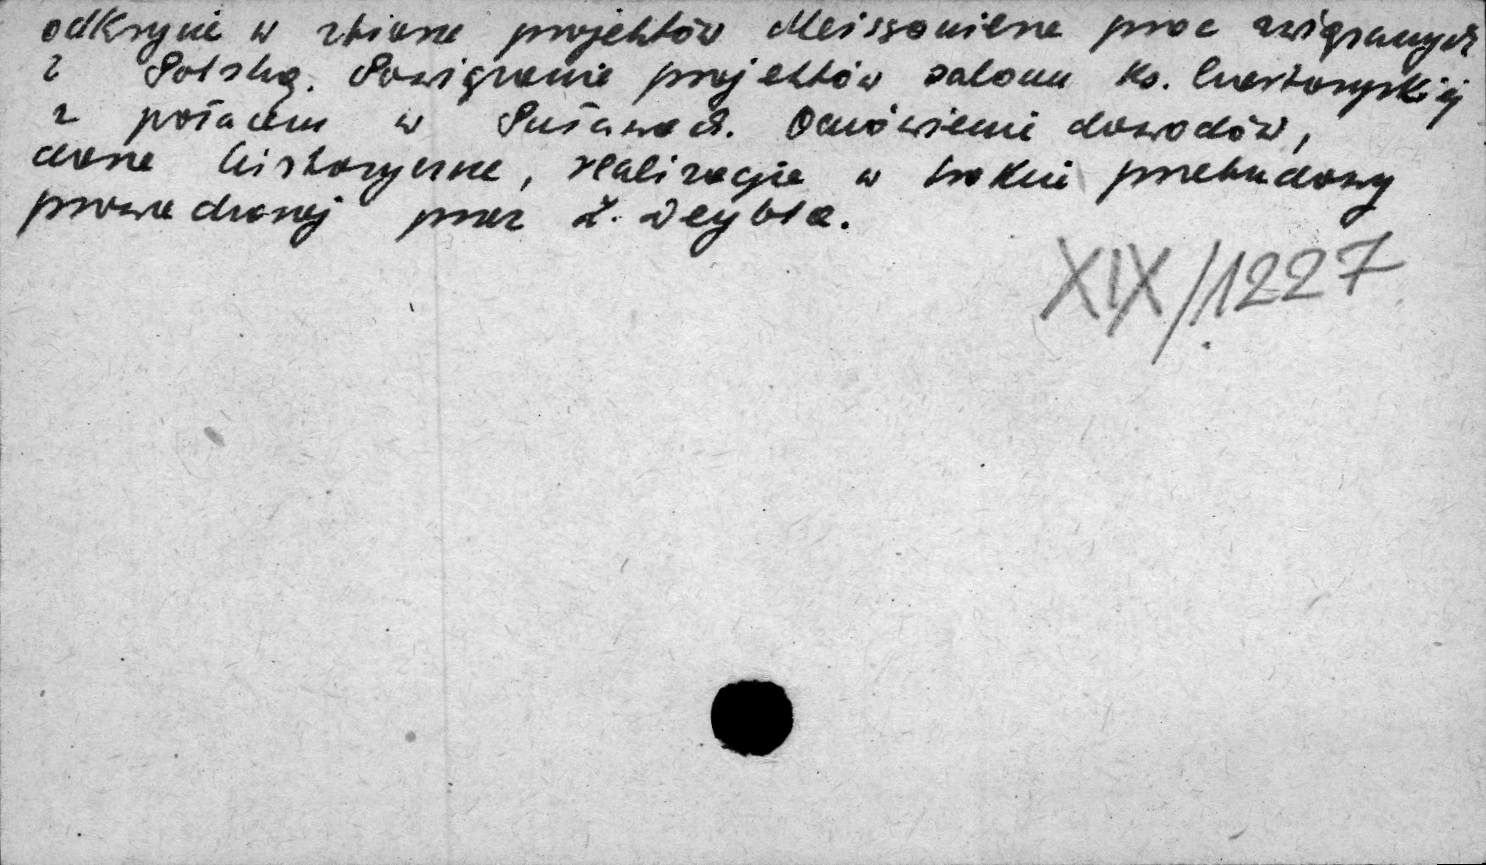 odkrycie w zbiorze projektów Meissoniera prac związanych
z Polską. Powiązanie projektów salonu ks. Czartoryskiej
z pałacem w Puławach. Omówienie dowodów,
dane historyczne, realizacja w trakcie przebudowy
prowadzonej przez Z. Deybla.
XIX/1227